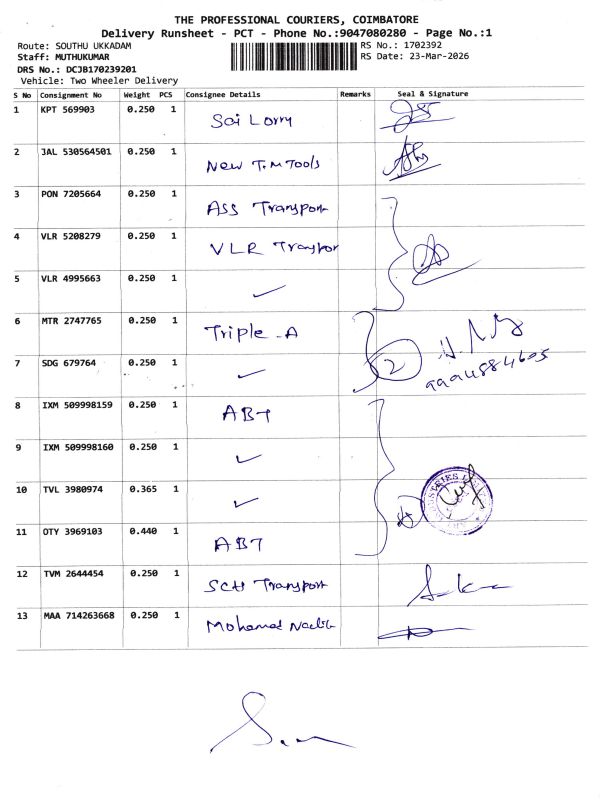 THE PROFESSIONAL COURIERS, COIMBATORE
Delivery Runsheet - PCT - Phone No.:9047080280 - Page No.:1
Route: SOUTHU UKKADAM
RS No.: 1702392
Staff: MUTHUKUMAR
RS Date: 23-Mar-2026
DRS No.: DCJB170239201
Vehicle: Two Wheeler Delivery
S No Consignment No Weight PCS Consignee Details Remarks Seal & Signature
1 KPT 569903 0.250 1 Sai Lorry
2 JAL 530564501 0.250 1 New T.M Tools
3 PON 7205664 0.250 1 ASS Transport
4 VLR 5208279 0.250 1 VLR Transpor
5 VLR 4995663 0.250 1 ✓
6 MTR 2747765 0.250 1 Triple -A
7 SDG 679764 0.250 1 ✓ 2
8 IXM 509998159 0.250 1 ABT
9 IXM 509998160 0.250 1 ✓
10 TVL 3980974 0.365 1 ✓
11 OTY 3969103 0.440 1 ABT
12 TVM 2644454 0.250 1 SCH Transport
13 MAA 714263668 0.250 1 Mohamed